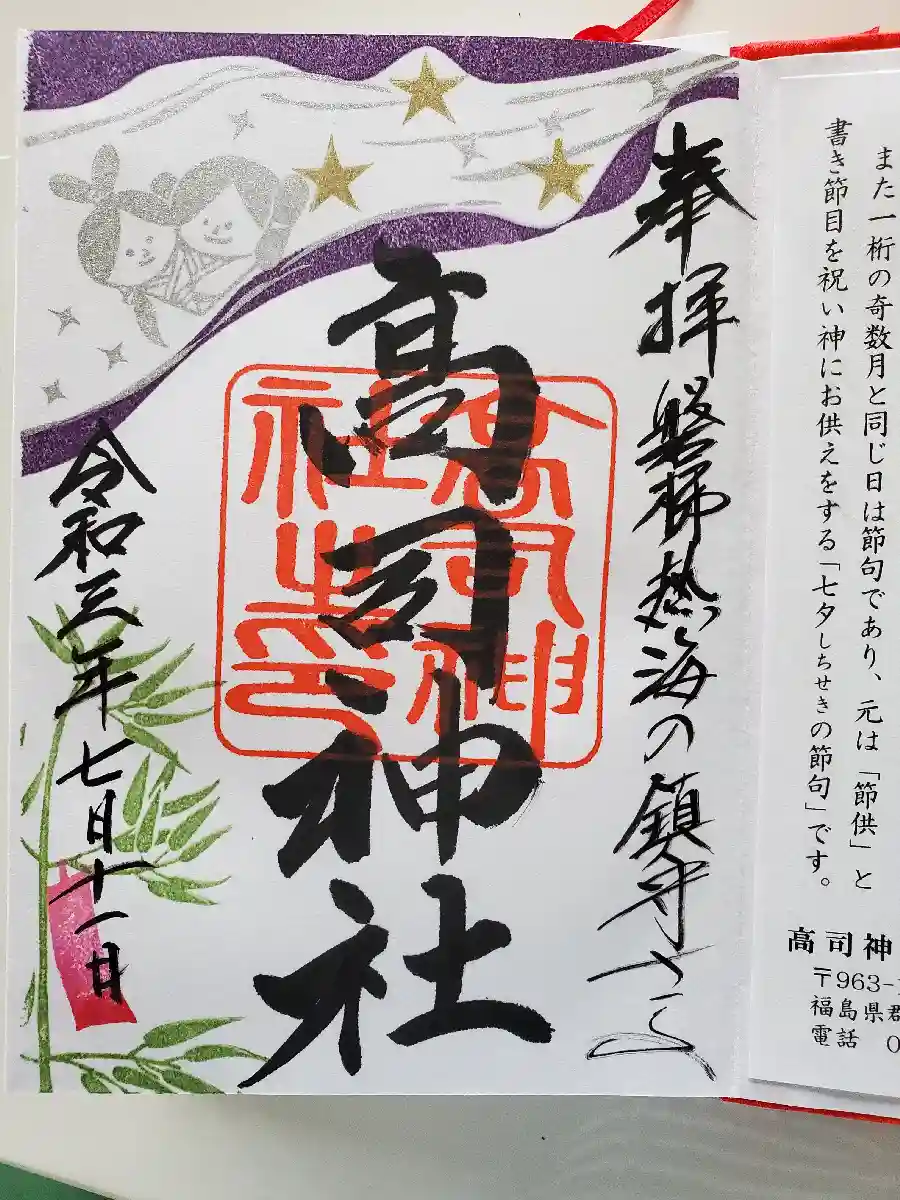 また一桁の奇数月と同じ日は節句であり、元は「節供」と
書き節目を祝い神にお供えをする「七夕しちせきの節句」です。
高司神
〒963-
福島県
電話 0
奉拝 磐梯熱海の鎮守さま
高司神社
高司神社之印
令和三年七月十一日